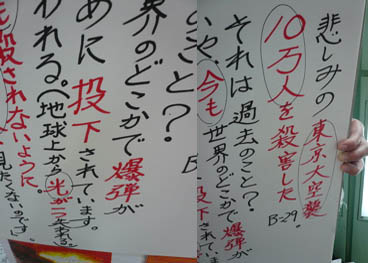 悲しみの東京大空襲
10万人を殺害した B-29.
それは過去のこと?
いや、今も世界のどこかで爆弾が
投下されて
のこと?
B-
界のどこかで爆弾が
めに投下されています。
われる。(地球上から光が
殺されないように。
見たくないのです」